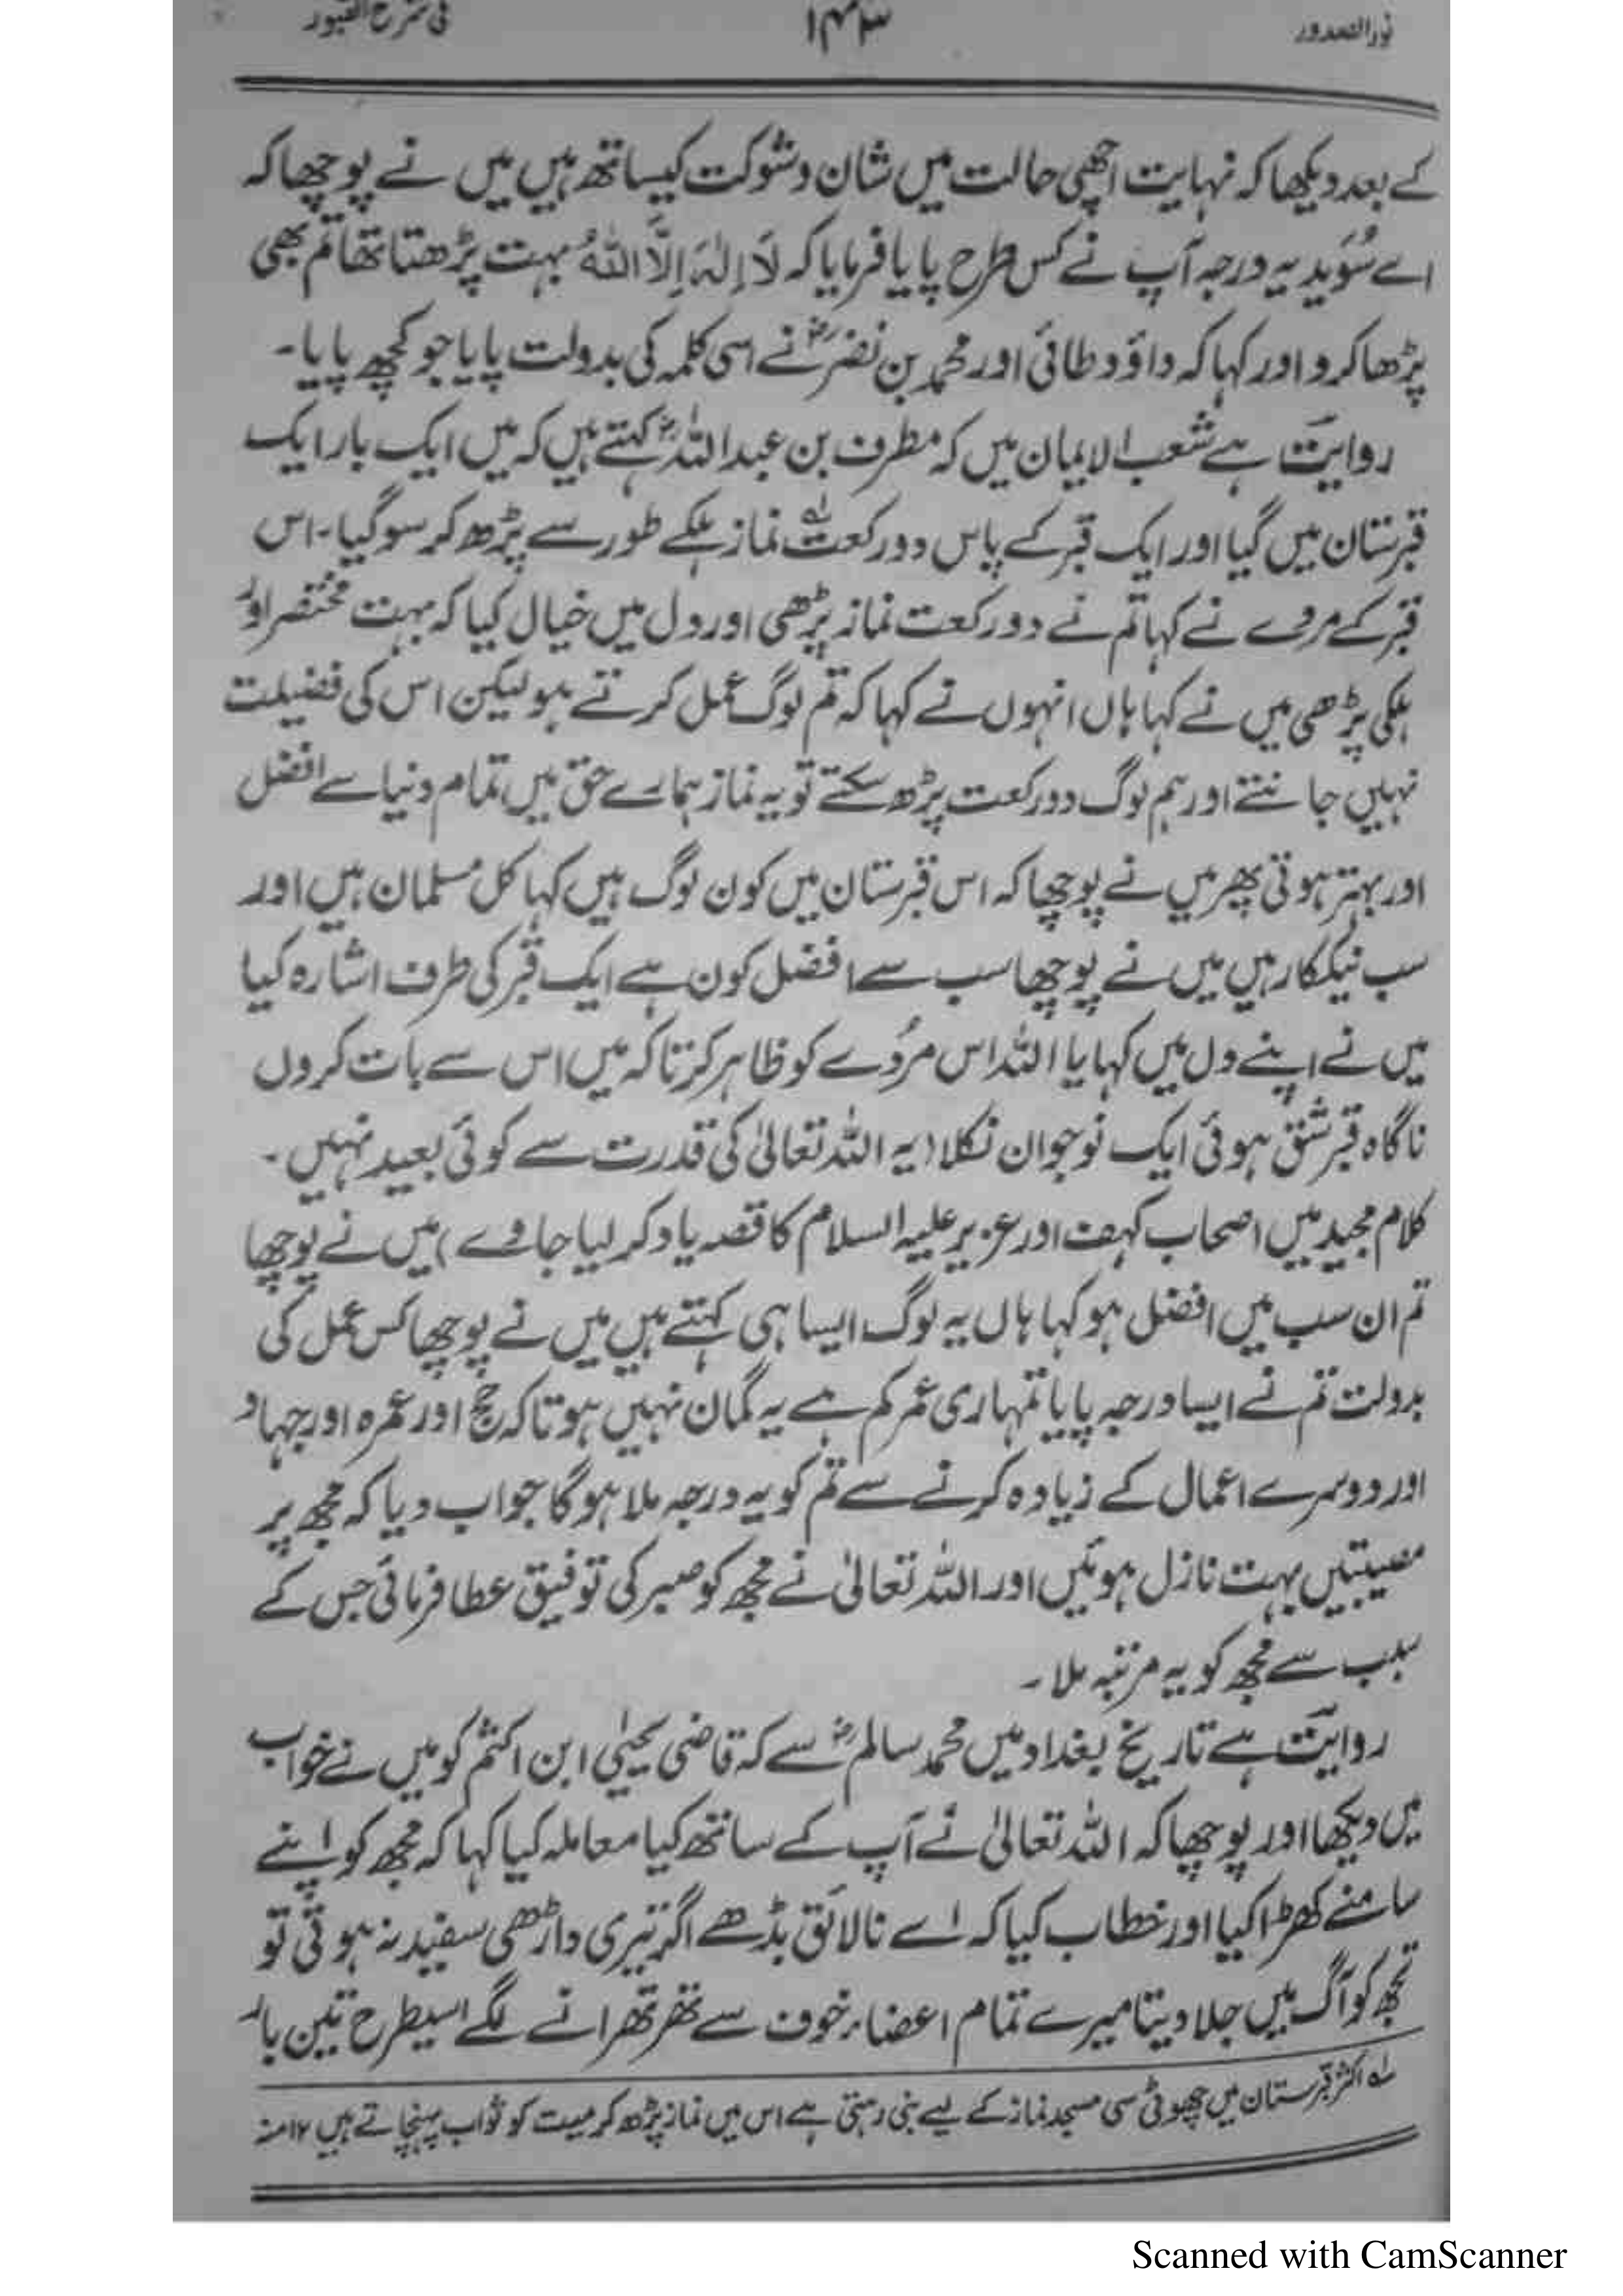 نور الصدور ۱۴۳ فی شرح القبور
کے بعد دیکھا کہ نہایت اچھی حالت میں شان و شوکت کیساتھ ہیں میں نے پوچھا کہ
اے سُوَید یہ درجہ آپ نے کس طرح پایا فرمایا کہ لَا اِلٰہَ اِلَّا اللہُ بہت پڑھتا تھا تم بھی
پڑھا کرو اور کہا کہ داؤد طائی اور محمد بن نضرؒ نے اسی کلمہ کی بدولت پایا جو کچھ پایا۔
روایت ہے شعب الایمان میں کہ مطرف بن عبداللہؒ کہتے ہیں کہ میں ایک بار ایک
قبرستان میں گیا اور ایک قبر کے پاس دو رکعت ؎۱ نماز ہلکے طور سے پڑھ کر سو گیا۔ اس
قبر کے مردے نے کہا تم نے دو رکعت نماز پڑھی اور دل میں خیال کیا کہ بہت مختصر اور
ہلکی پڑھی میں نے کہا ہاں انہوں نے کہا کہ تم لوگ عمل کرتے ہو لیکن اس کی فضیلت
نہیں جانتے اور ہم لوگ دو رکعت پڑھ سکتے تو یہ نماز ہمارے حق میں تمام دنیا سے افضل
اور بہتر ہوتی پھر میں نے پوچھا کہ اس قبرستان میں کون لوگ ہیں کہا کل مسلمان ہیں اور
سب نیککار ہیں میں نے پوچھا سب سے افضل کون ہے ایک قبر کی طرف اشارہ کیا
میں نے اپنے دل میں کہا یا اللہ اس مُردے کو ظاہر کر تاکہ میں اس سے بات کروں
ناگاہ قبر شق ہوئی ایک نوجوان نکلا (یہ اللہ تعالیٰ کی قدرت سے کوئی بعید نہیں۔
کلام مجید میں اصحاب کہف اور عزیر علیہ السلام کا قصہ یاد کر لیا جاوے) میں نے پوچھا
تم ان سب میں افضل ہو کہا ہاں یہ لوگ ایسا ہی کہتے ہیں میں نے پوچھا کس عمل کی
بدولت تم نے ایسا درجہ پایا تمہاری عمر کم ہے یہ گمان نہیں ہوتا کہ حج اور عمرہ اور جہاد
اور دوسرے اعمال کے زیادہ کرنے سے تم کو یہ درجہ ملا ہوگا جواب دیا کہ مجھ پر
مصیبتیں بہت نازل ہوئیں اور اللہ تعالیٰ نے مجھ کو صبر کی توفیق عطا فرمائی جس کے
سبب سے مجھ کو یہ مرتبہ ملا۔
روایت ہے تاریخ بغداد میں محمد سالمؒ سے کہ قاضی یحییٰ ابن اکثم کو میں نے خواب
میں دیکھا اور پوچھا کہ اللہ تعالیٰ نے آپ کے ساتھ کیا معاملہ کیا کہا کہ مجھ کو اپنے
سامنے کھڑا کیا اور خطاب کیا کہ اے نالائق بڈھے اگر تیری داڑھی سفید نہ ہوتی تو
تجھ کو آگ میں جلا دیتا میرے تمام اعضاء خوف سے تھرتھرانے لگے اسیطرح تین بار
؎۱ اکثر قبرستان میں چھوٹی سی مسجد نماز کے لیے بنی رہتی ہے اس میں نماز پڑھ کر میت کو ثواب پہنچاتے ہیں ۱۲ منہ
Scanned with CamScanner